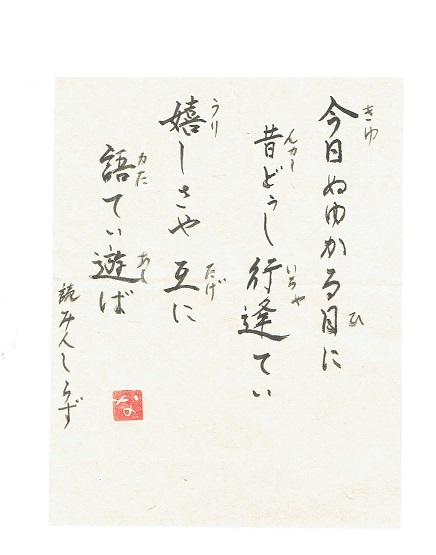 きゆ ひ
今日ぬゆかる日に
んかし いちや
昔どぅし行逢てぃ
うり たげ
嬉しさや互に
かた あし
語てぃ遊ば
読みんしらず
な